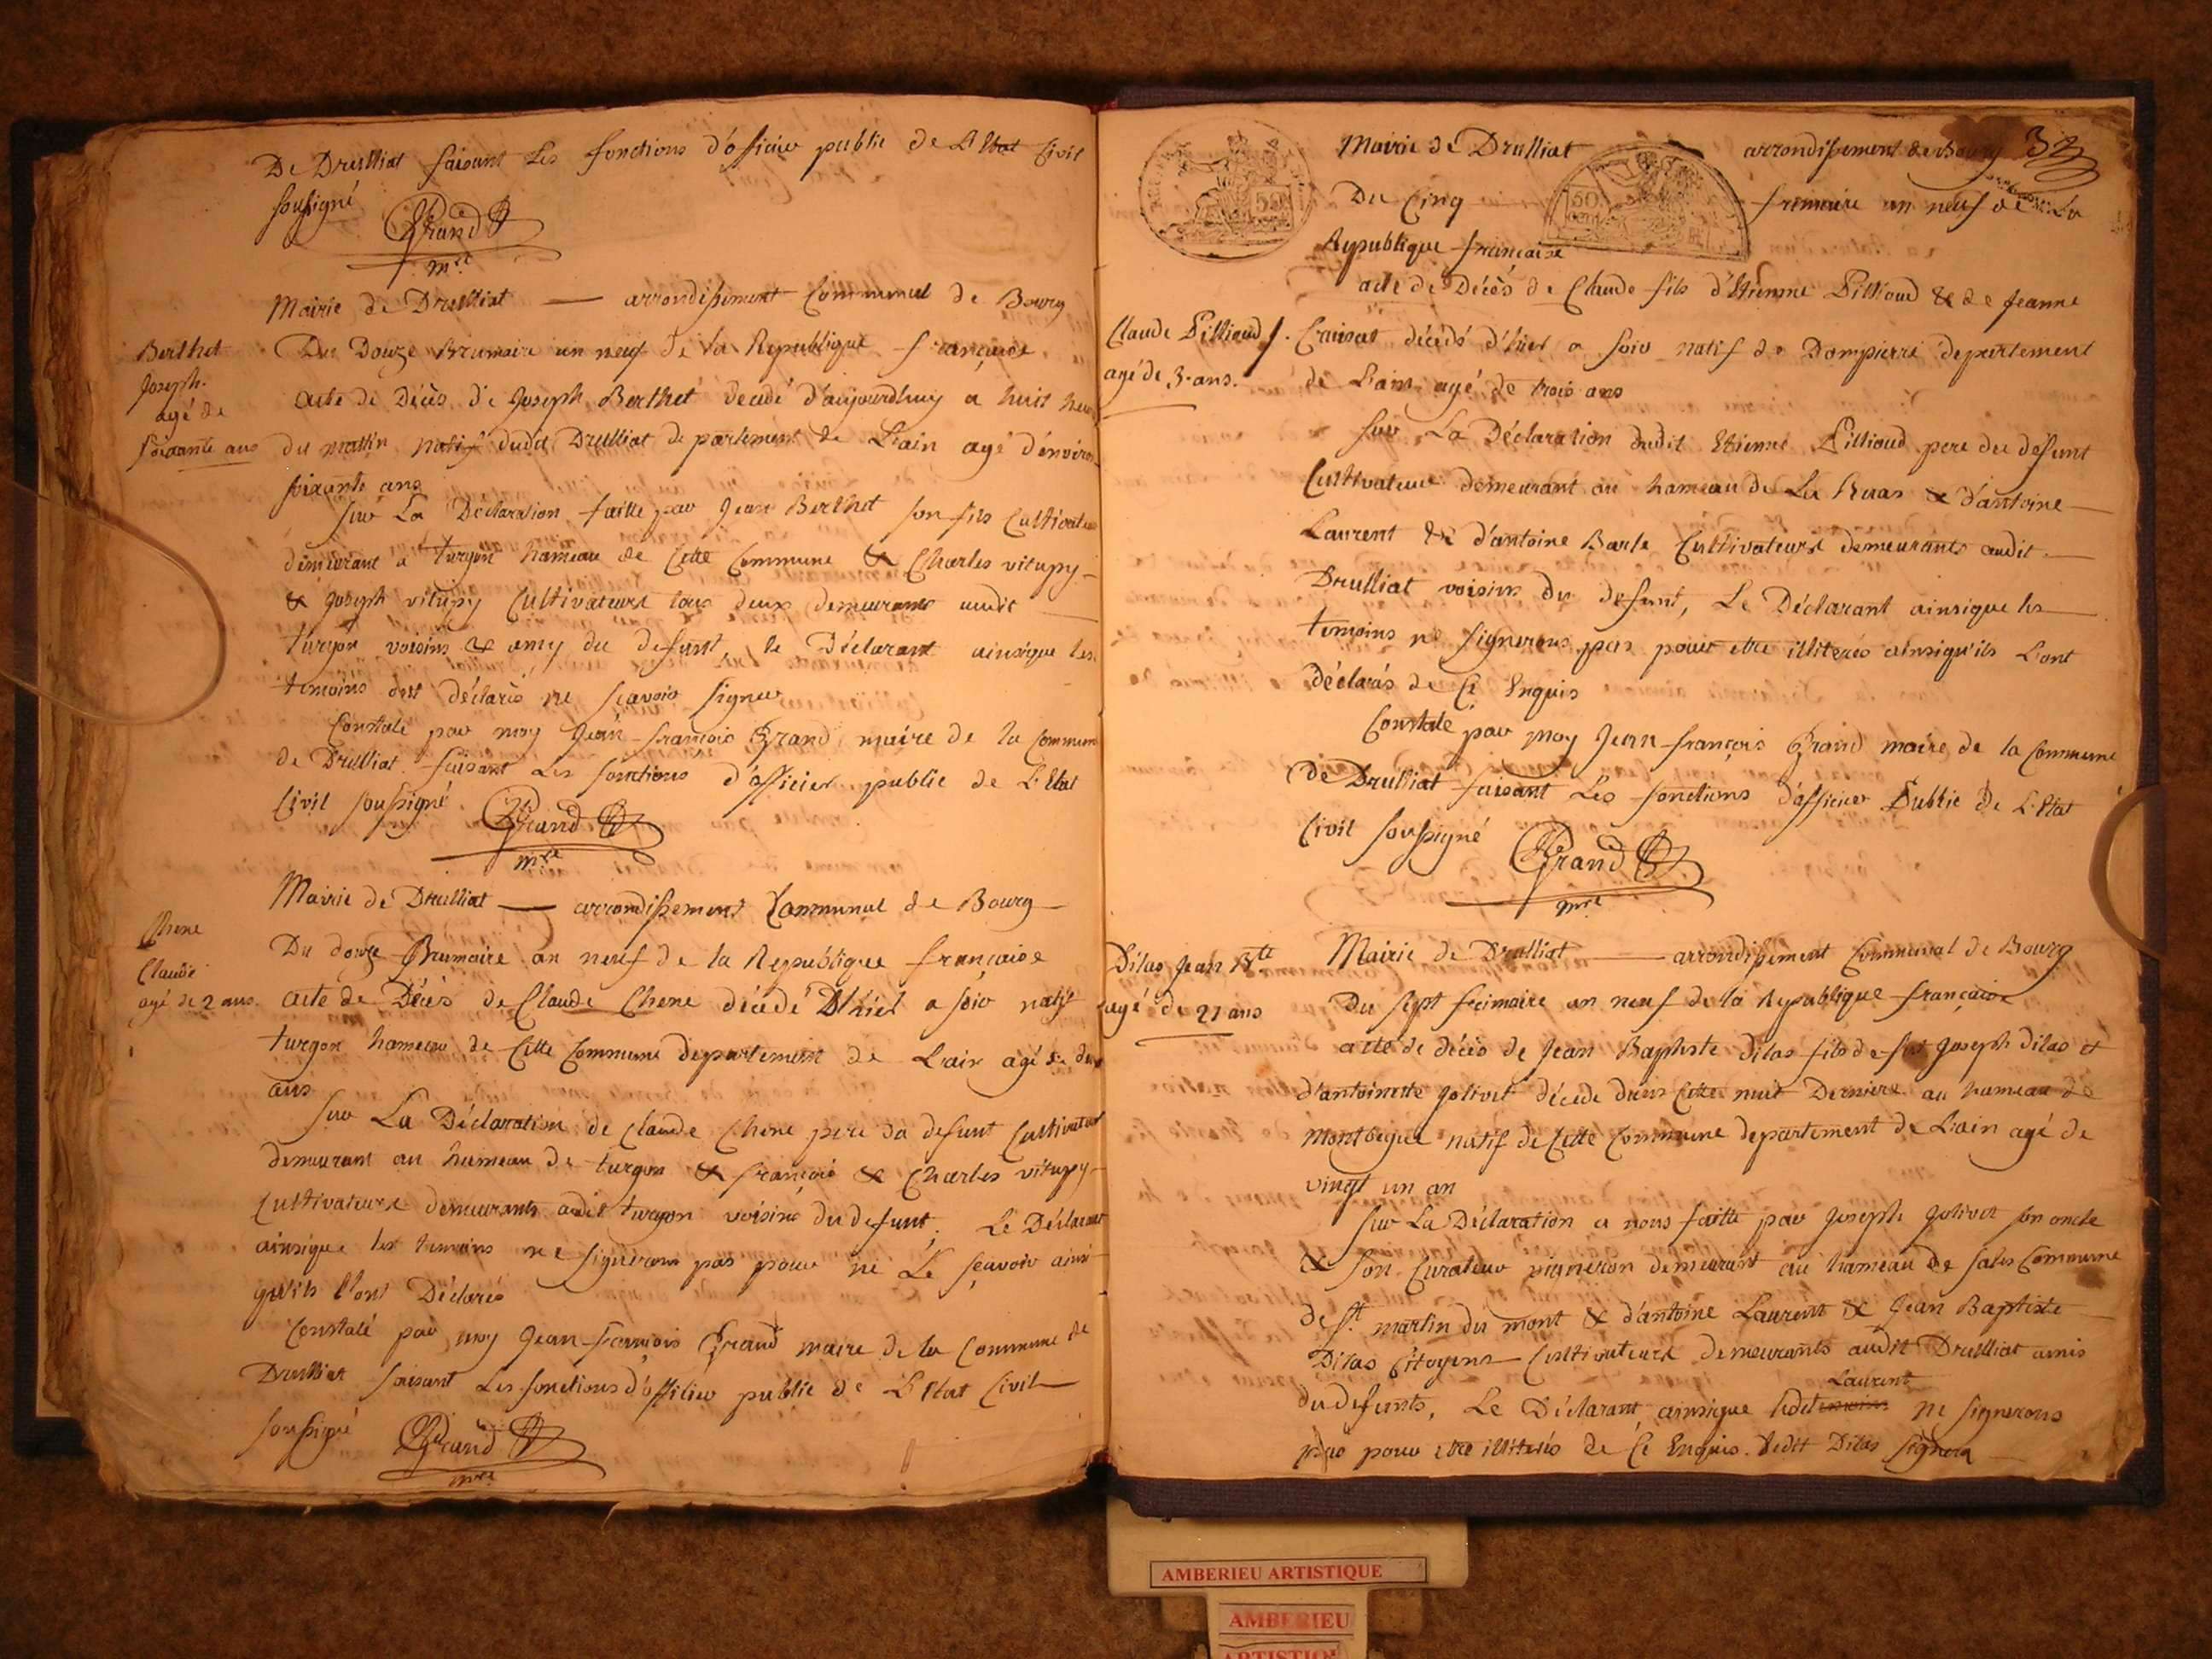 De Drulliat faisant Les fonctions d'officier public de L'Etat Civil
soussigné
Grand
mre
Mairie de Drulliat — arrondissement Communal de Bourg
Berthet
Joseph.
agé de
soixante ans
Du Douze Brumaire an neuf de la Republique française
acte de Décès de Joseph Berthet decedé d'aujourdhuy a huit heures
du mattin natif dudit Drulliat departement de L'ain agé d'environ
soixante ans
sur La Déclaration faitte par Jean Berthet son fils Cultivateur
demeurant a turgon hameau de Cette Commune & Charles vitupy
& joseph vitupy Cultivateurs tous deux demeurants audit
turgon voisins & amy du defunt, le Déclarant ainsique les
temoins ont déclarés ne sçavoir signer
Constaté par moy Jean-francois Grand maire de la Commune
de Drulliat faisant Les fonctions d'officier public de L'Etat
Civil soussigné
Grand
mre
Mairie de Drulliat — arrondissement Communal de Bourg
Chene
Claude
agé de 2 ans.
Du douze Brumaire an neuf de la Republique française
acte de Décès de Claude Chene décédé D'hier a soir natif
turgon hameau de Cette Commune departement de L'ain agé de deux
ans
sur La Déclaration de Claude Chene pere du defunt Cultivateur
demeurant au hameau de turgon & françois & Charles vitupy
Cultivateurs demeurants audit turgon voisins du defunt, Le Déclarant
ainsique les temoins ne signeront pas pour ne Le sçavoir ainsi
qu'ils l'ont Déclarés
Constaté par moy Jean-françois Grand maire de la Commune de
Drulliat faisant Les fonctions d'officier public de L'Etat Civil
soussigné
Grand
mre
Mairie de Drulliat arrondissement de Bourg 32
50
Du Cinq frimaire an neuf de La
Republique française
acte de Décès de Claude fils d'Etienne Pillioud & de Jeanne
Claude Pillioud
agé de 3. ans.
décédé d'hier a soir natif de Dompierre departement
de L'ain agé de trois ans
sur La Déclaration dudit Etienne Pillioud pere du defunt
Cultivateur demeurant au hameau de & d'antoine
Laurent & d'antoine Barle Cultivateurs demeurants audit
Drulliat voisins du defunt, Le Déclarant ainsique les
temoins ne signerons pas pour etre illiterés ainsiqu'ils L'ont
déclarés de Ce Enquis
Constaté par moy Jean-françois Grand maire de la Commune
de Drulliat faisant Les fonctions d'officier Public de L'Etat
Civil soussigné
Grand
mre
Dilas Jean Bte
agé de 21 ans
Mairie de Drulliat — arrondissement Communal de Bourg
Du sept frimaire an neuf de la Republique française
acte de décès de Jean Baptiste dilas fils de feu Joseph dilas et
d'antoinette Jolivet décédé dans Cette nuit Derniere au hameau de
Montbegue natif de Cette Commune departement de L'ain agé de
vingt un an
sur La Déclaration a nous faitte par Joseph Jolivet son oncle
& son Curateur vigneron demeurant au hameau de sales Commune
de st. martin du mont & d'antoine Laurent & Jean Baptiste
Dilas Citoyens Cultivateurs demeurants audit Drulliat amis
Laurent
du defunts, Le Déclarant ainsique ledit ne signerons
pas pour etre illiterés de Ce Enquis. Ledit Dilas signera
AMBERIEU ARTISTIQUE
AMBERIEU
ARTISTIQ